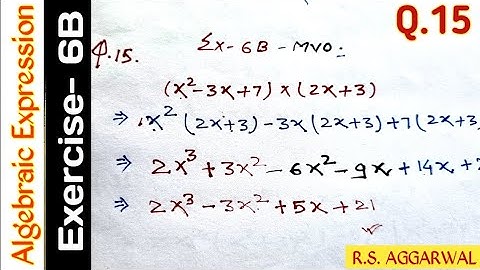 Algebraic Expression
Exercise- 6B
Q.15
Q.15.
Ex-6B-MVO:
(x²-3x+7) x (2x+3)
⇒ x² (2x+3) -3x (2x+3) +7 (2x+3
⇒ 2x³ + 3x² - 6x² - 9x + 14x +2
⇒ 2x³ - 3x² + 5x + 21
R.S. AGGARWAL